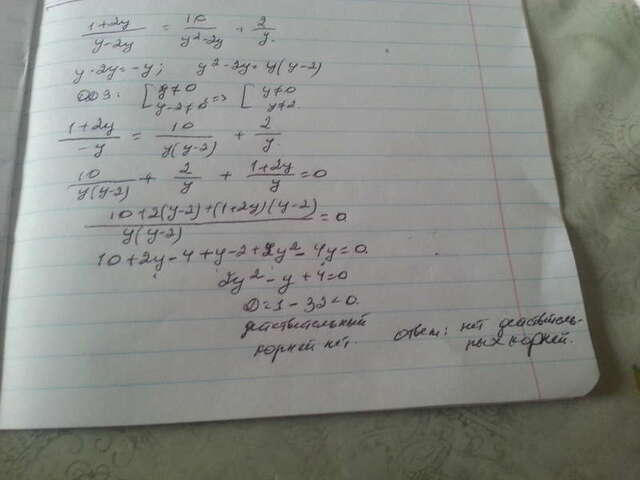 (1+2y)/(y-2y) = 10/(y²-2y) + 2/y.
y-2y=-y; y²-2y=y(y-2)
ОДЗ: [y≠0 y-2≠0 => [y≠0 y≠2.
(1+2y)/(-y) = 10/(y(y-2)) + 2/y.
10/(y(y-2)) + 2/y + (1+2y)/y = 0
(10+2(y-2)+(1+2y)(y-2))/(y(y-2)) = 0
10+2y-4+y-2+2y²-4y=0.
2y²-y+4=0
D=1-32=0.
действительный
корней нет.
ответ: нет действитель-
ных корней.